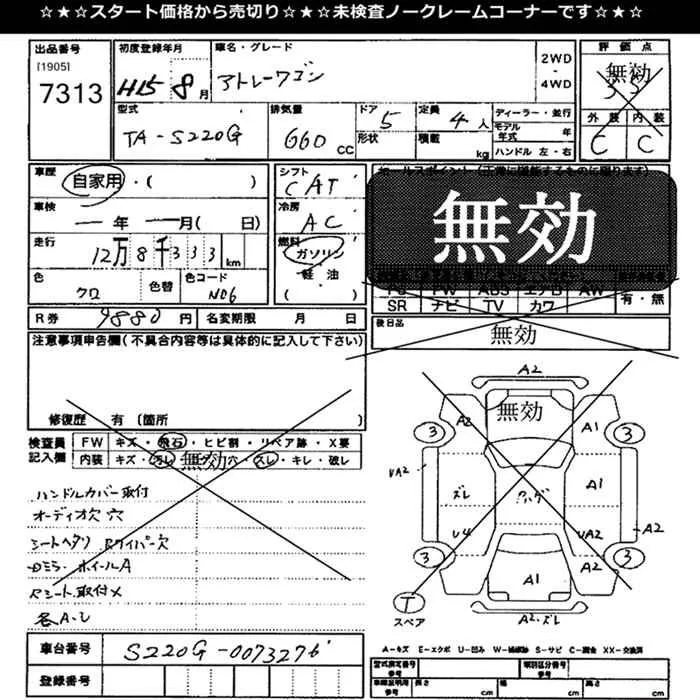 ☆★☆スタート価格から売切り☆★☆未検査ノークレームコーナーです☆★☆
出品番号 初度登録年月 車名・グレード 2WD・4WD 評価点
[1905]
7313 H15 8月 アトレーワゴン 無効 35
外装 内装
C C
型式 排気量 ドア 定員 ディーラー・並行
TA-S220G 660CC 5 4人 モデル年式 年
形状 積載 kg ハンドル 左・右
車歴 自家用・( ) シフト CAT セールスポイント(正常に機能するものに限ります)
車検 一年 一月( 日) 冷房 AC 無効
走行 12万8千333km 燃料 ガソリン
軽油
( )
色 クロ 色替 色コード N06
PS PW ABS エアB AW 有・無
SR ナビ TV カワ
R券 9880円 名変期限 月 日 後日品 無効
注意事項申告欄(不具合内容等は具体的に記入して下さい)
修復歴 有 (箇所 )
検査員記入欄 FW キズ・飛石・ヒビ割・リペア跡・X要
内装 キズ・汚レ・コゲ穴・スレ・キレ・破レ
無効
ハンドルカバー取付
オーディオ欠 穴
シートヘタリ Rワイパー欠
ホイールA
Rシート取付X
各A・U
A2
無効
A2 A1
3 3
UA2 ズレ A1
A2
U4 UA2
3 A1 A2 3
T
スペア
A2・ズレ
A-キズ E-エクボ U-凹み W-補修跡 S-サビ C-腐食 XX-交換済
車台番号 S220G-0073276
登録番号
型式指定番号 類別区分番号
車庫証明用 長さ cm 幅 cm 高さ cm